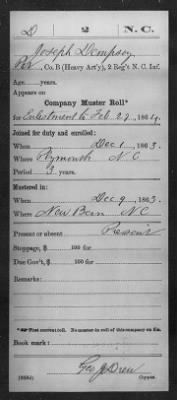 D 2 N.C.
Joseph Dempsey
Pvt., Co. B (Heavy Art'y), 2 Reg't N.C. Inf.
Age years.
Appears on
Company Muster Roll*
in Enlistment to Feb 29, 1864.
Joined for duty and enrolled:
When Dec 1, 1863.
Where Plymouth N C
Period 3 years.
Mustered in:
When Dec 9, 1863.
Where New Bern N C
Present or absent Present
Stoppage, $ 100 for
Due Gov't, $ 100 for
Remarks:
First current roll. No muster-in roll of this company on file.
Book mark:
Geo J Drew
(858d) Copyist.